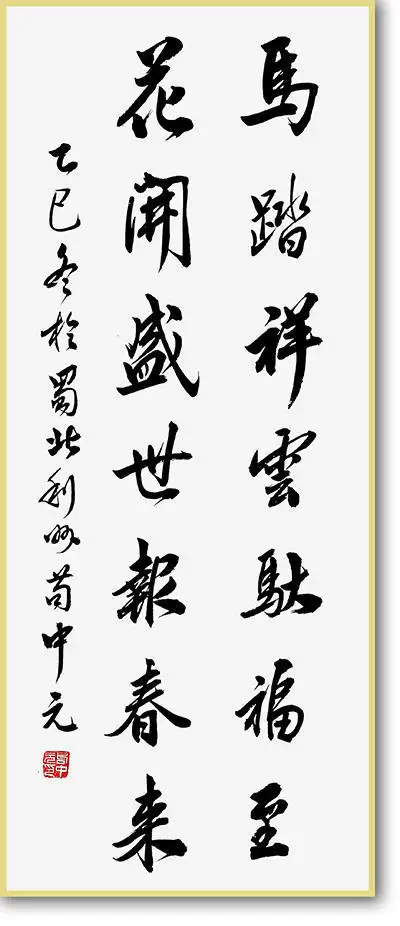 馬踏祥雲馱福至
花開盛世報春来
乙巳冬於蜀北利州苟中元